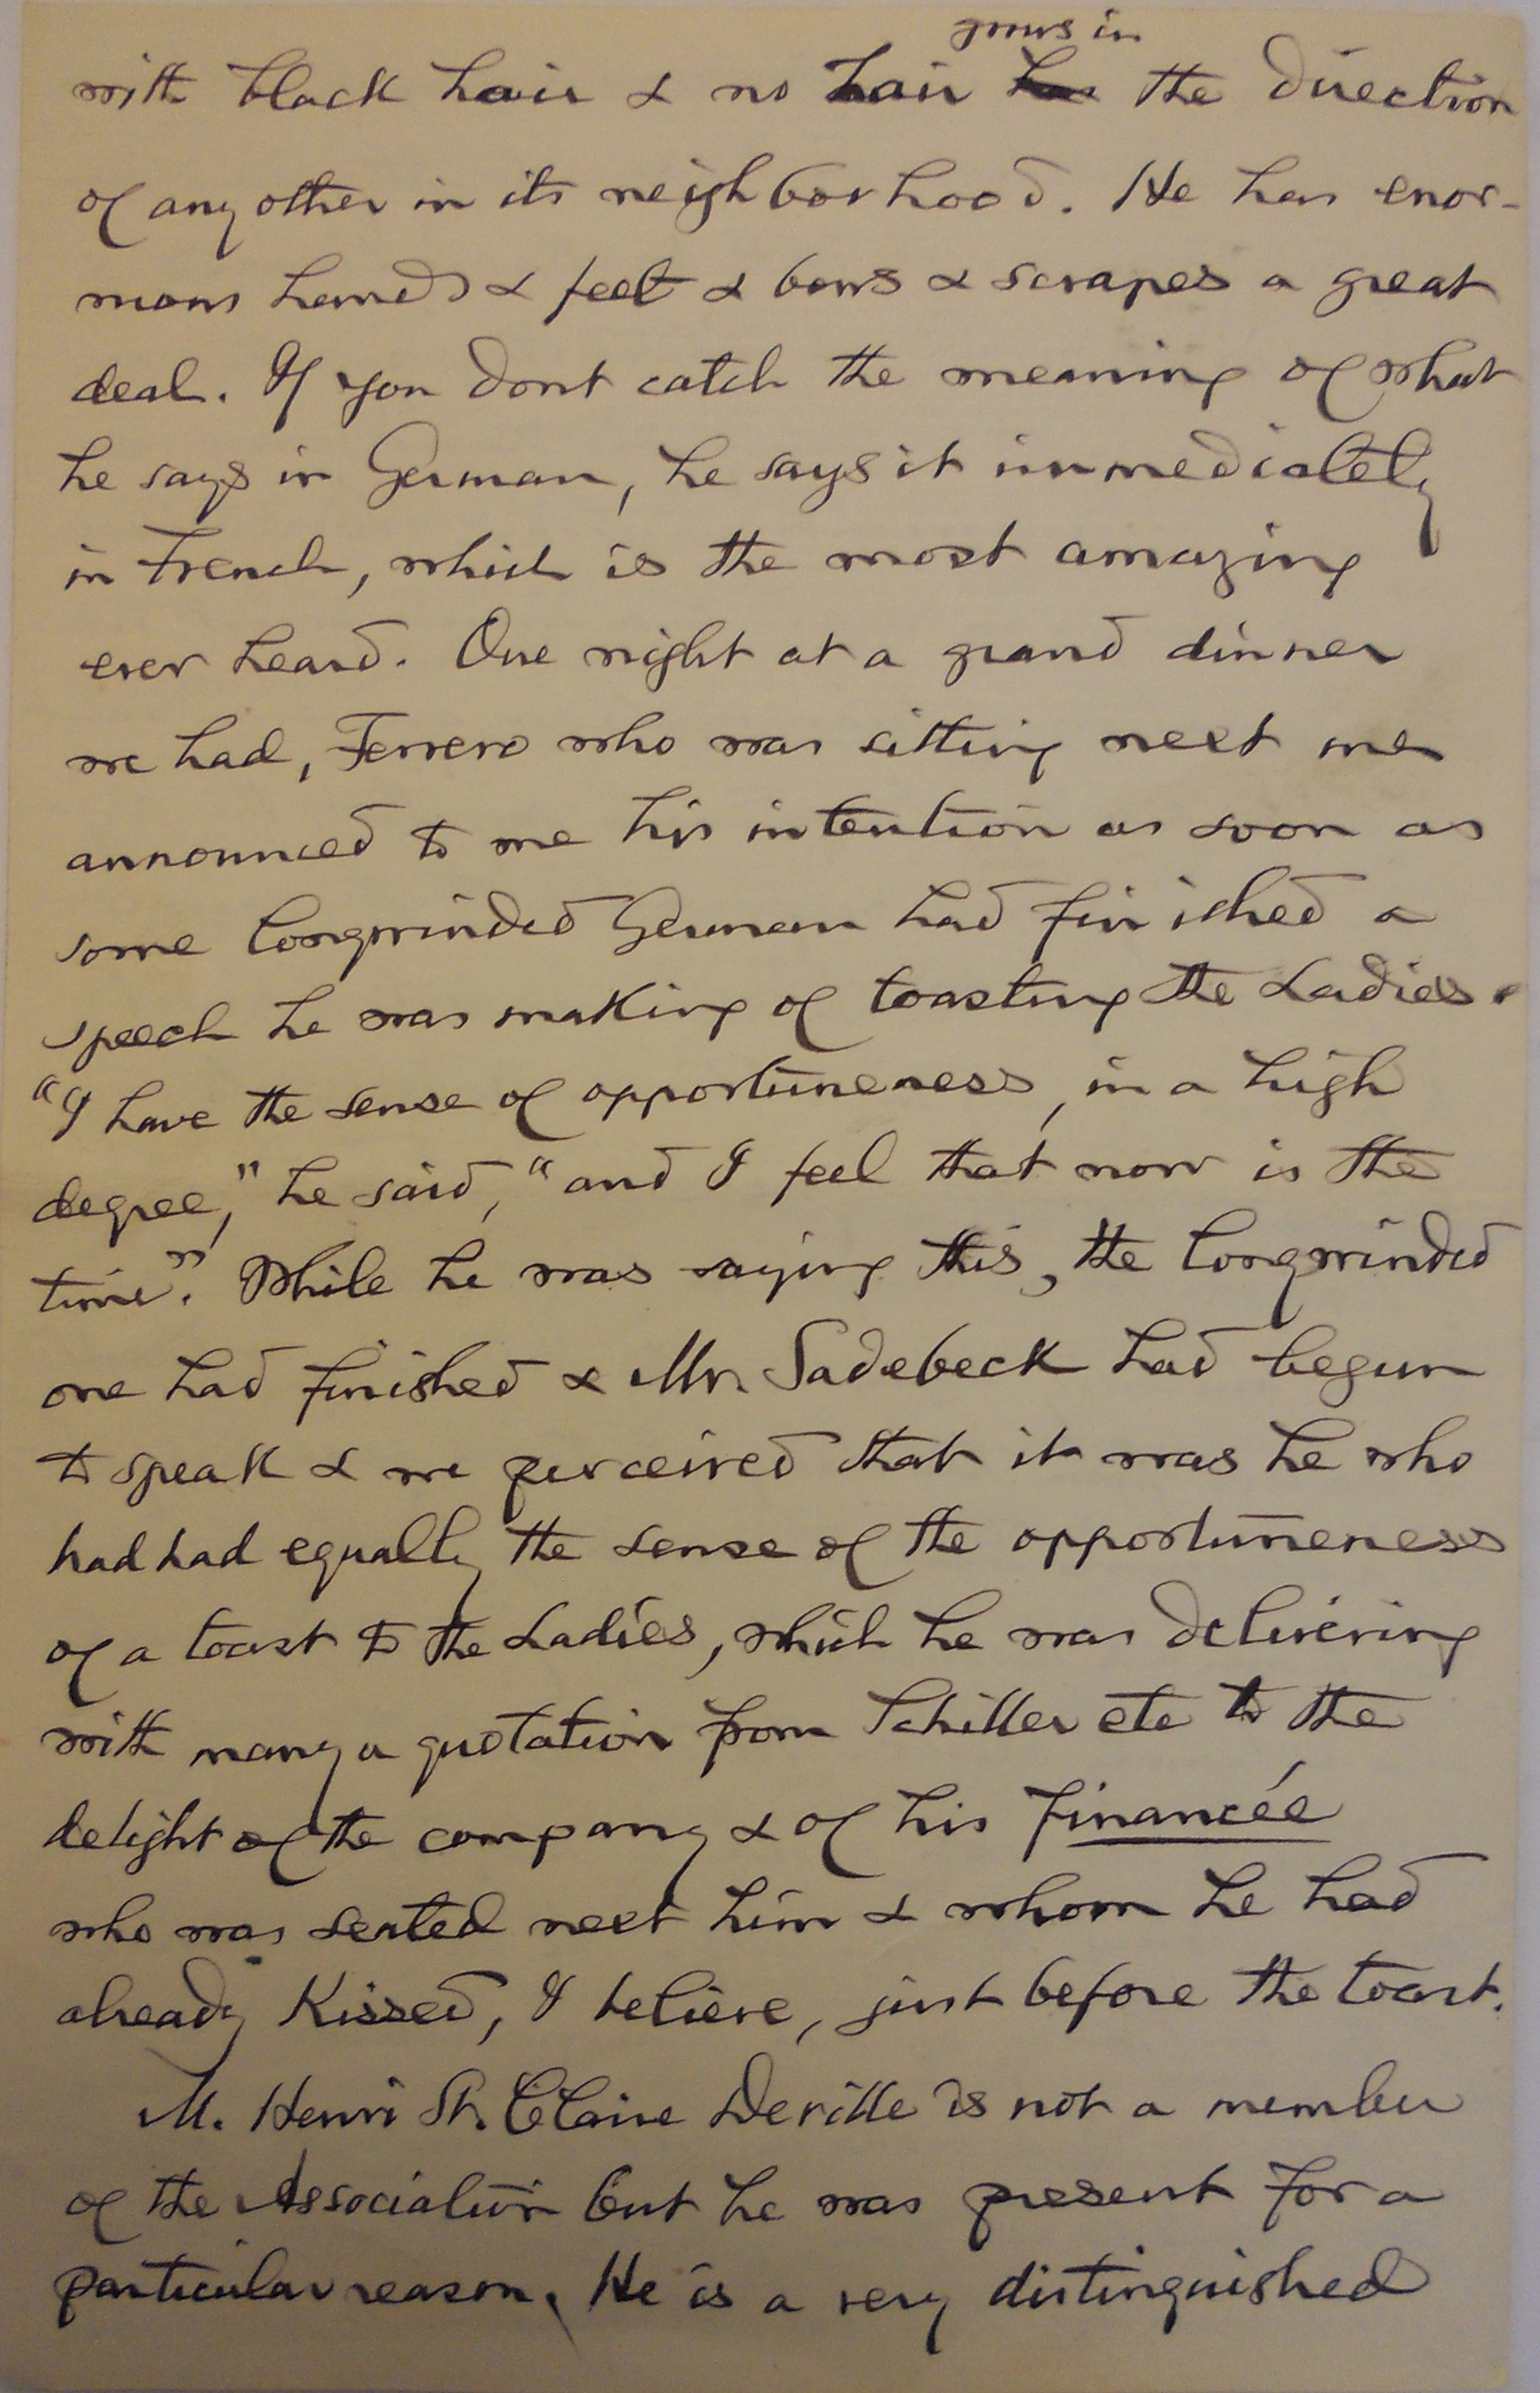 grows in
with black hair & no hair has the direction
of any other in its neighborhood. He has enor-
mous hands & feet & bows & scrapes a great
deal. If you dont catch the meaning of what
he says in German, he says it immediately
in French, which is the most amazing
ever heard. One night at a grand dinner
we had, Ferrero who was sitting next me
announced to me his intention as soon as
some longwinded German had finished a
speech he was making of toasting the Ladies.
"I have the sense of opportuneness, in a high
degree," he said, "and I feel that now is the
time". While he was saying this, the longwinded
one had finished & Mr. Sadebeck had begun
to speak & we perceived that it was he who
had had equally the sense of the opportuneness
of a toast to the Ladies, which he was delivering
with many a quotation from Schiller etc to the
delight of the company & of his financée
who was seated next him & whom he had
already kissed, I believe, just before the toast.
M. Henri St. Claire Deville is not a member
of the Association but he was present for a
particular reason. He is a very distinguished